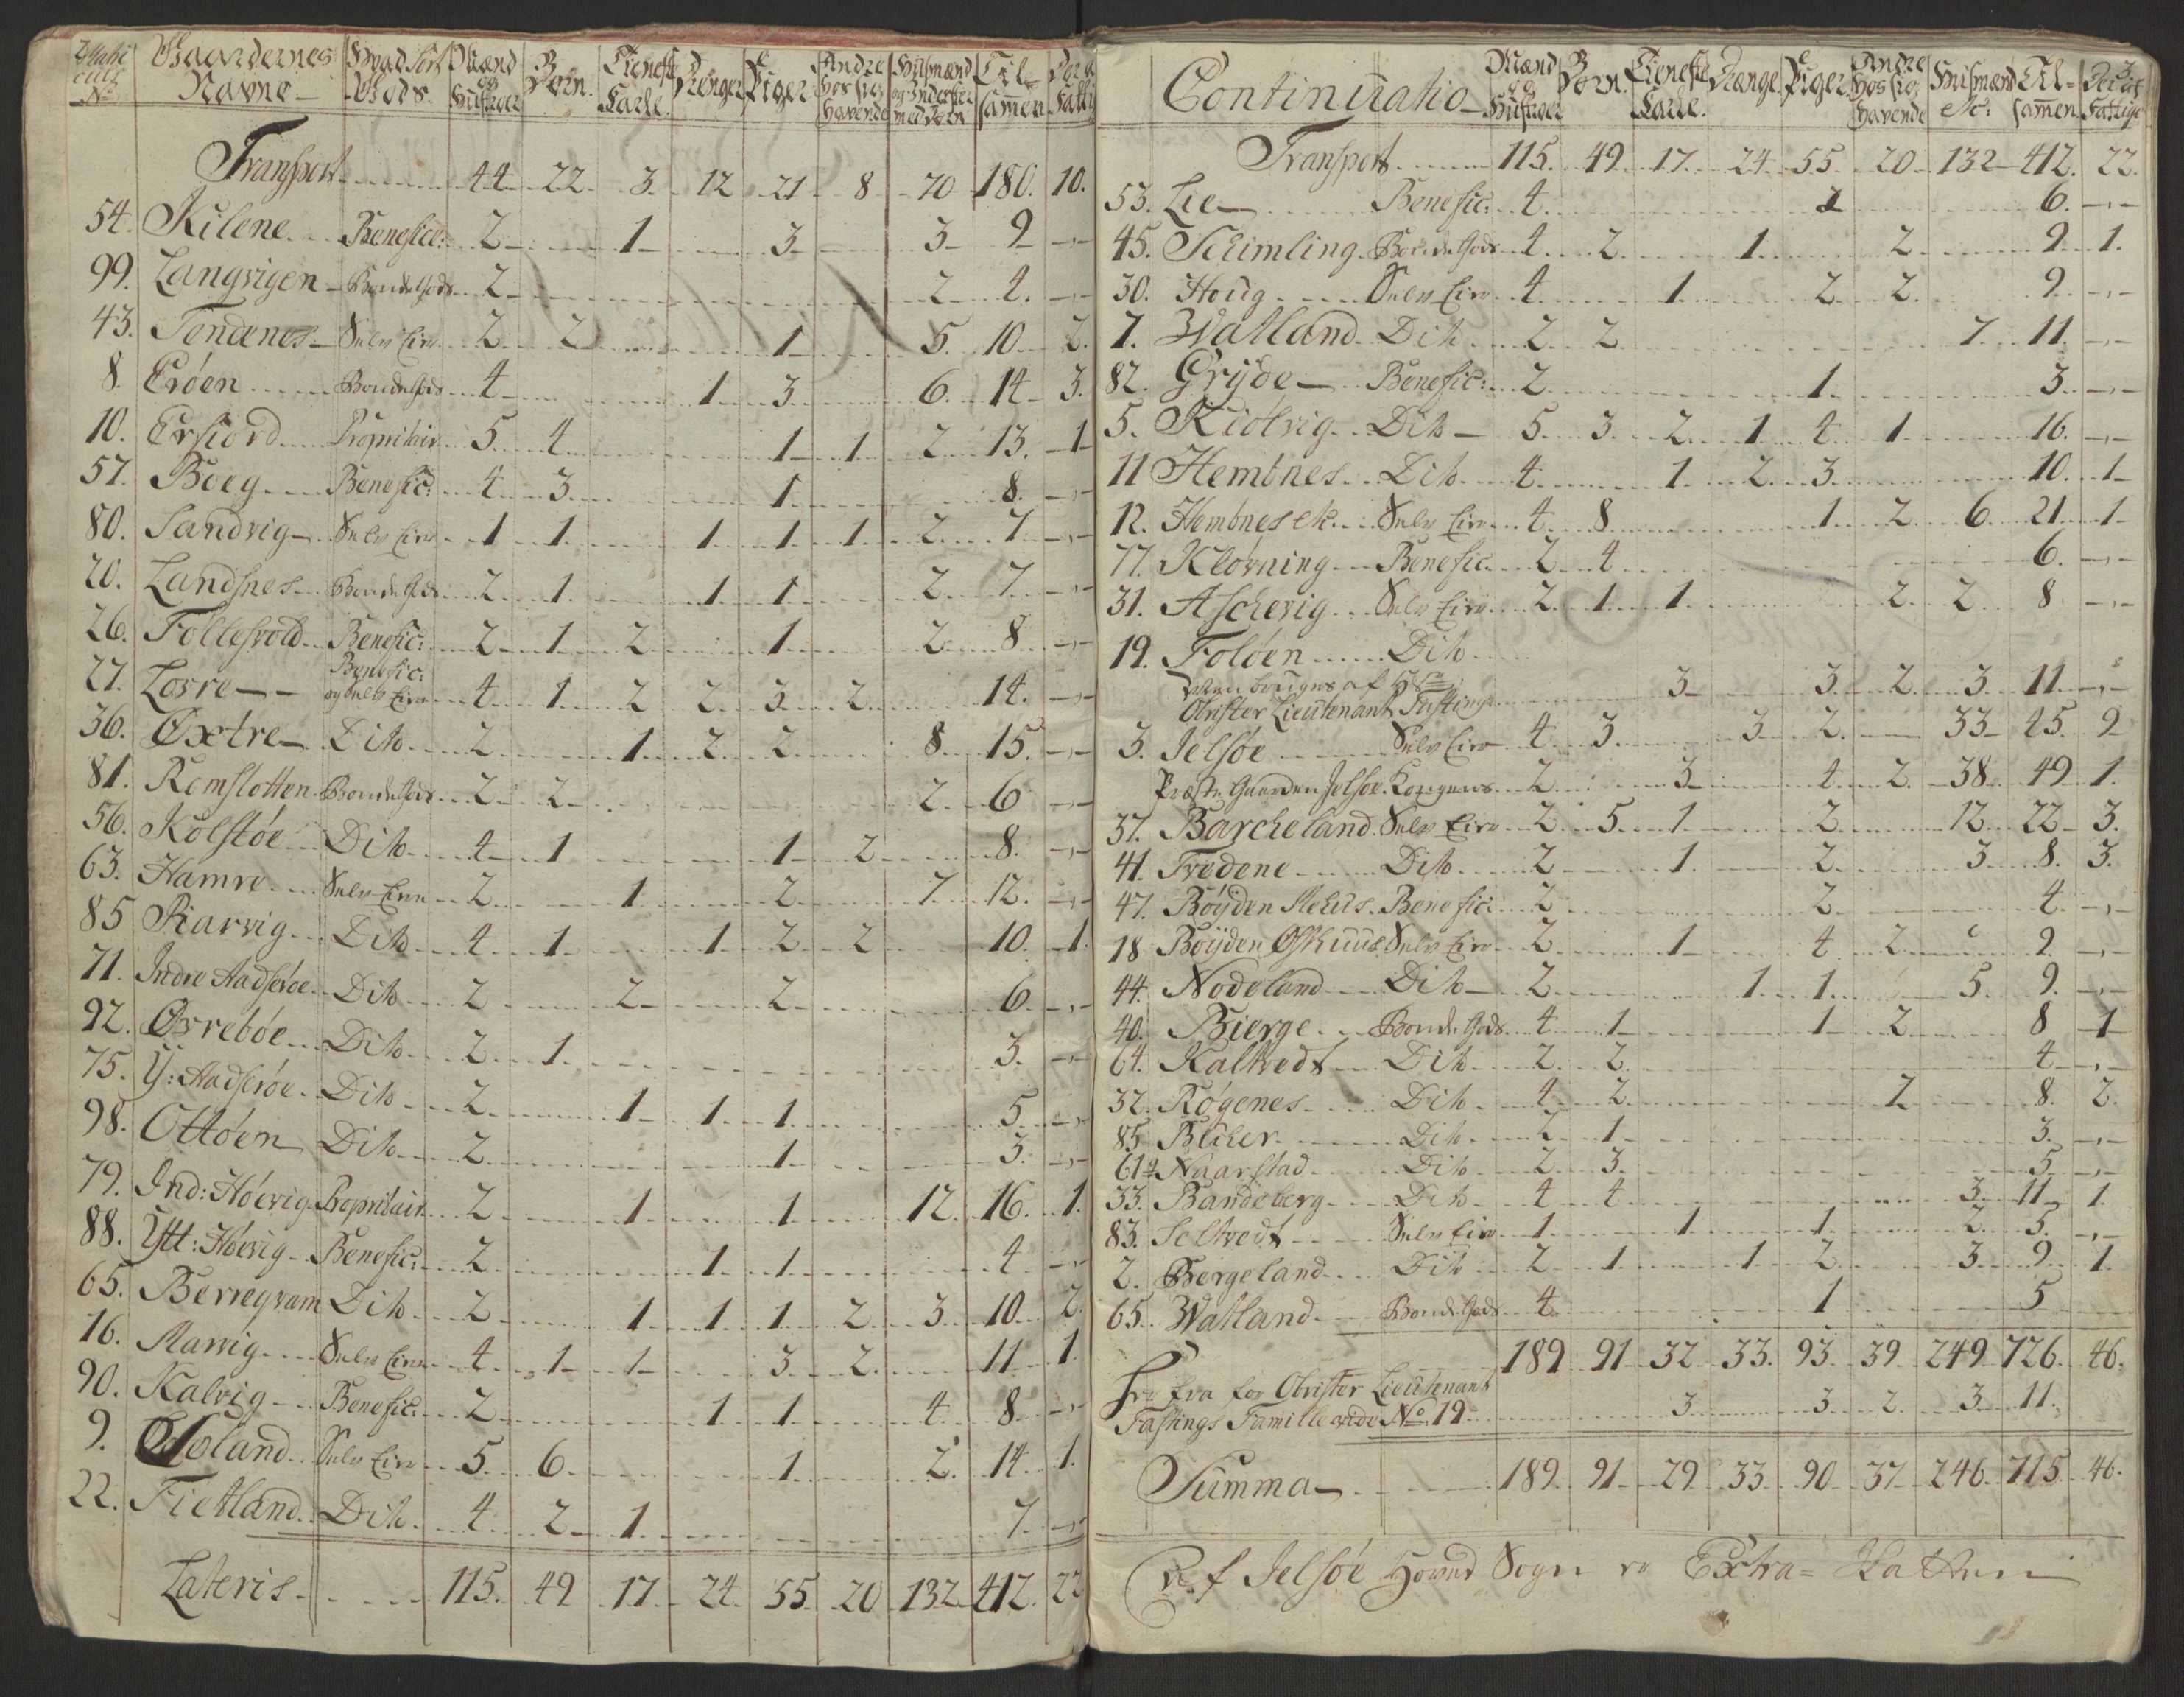 Matriculs No | Gaardernes Navne | Hvad Sort Gods | Mænd og Hustruer | Børn | Tieneste Karle | Drenge | Piger | Andre hos sig havende | Huusmænd og Inderster med Børn | Tilsammen | Deraf Fattige
Transport 44 22 3 12 21 8 70 180. 10.
54. Kilene Benefice: 2 1 3 3 9 -,-
99. Langvigen Bonde Gods 2 2 4. -,-
43. Tendenes Selv Eier 2 2 1 5 10 2.
8. Erøen Bonde Gods 4 1 3 6 14 3.
10. Erfiord Propritair 5 4 1 1 2 13. 1
57. Boeg Benefic: 4 3 1 8. -,-
80. Sandvig Selv Eier 1 1 1 1 1 2 7 -,-
20. Landsnes Bonde Gods 2 1 1 1 2 7 -,-
26. Follesvold Benefic: 2 1 2 1 2 8 -,-
27. Lovre Benefic: og Selv Eier 4 1 2 2 3 2 14. -,-
36. Øxtre Dito 2 1 2 2 8 15. -,-
81. Remslotten Bonde Gods 2 2 2 6 -,-
56. Kolstøe Dito 4 1 1 2 8. -,-
63. Hamre Selv Eier 2 1 2 7 12. -,-
85 Riarvig Dito 4 1 1 2 2 10. 1.
71. Indre Aadserøe Dito 2 2 2 6 -,-
92. Øvrebøe Dito 2 1 3. -,-
75. Y: Aadserøe Dito 2 1 1 1 5 -,-
98. Ottøen Dito 2 1 3. -,-
79. Ind: Høevig Propritair 2 1 1 12 16. 1.
88. Ytt: Høevig Benefic: 2 1 1 4 -,-
65. Berregvam Dito 2 1 1 1 2 3 10. 2.
16. Marvig Selv Eier 4 1 1 3 2 11 1.
90. Kalvig Benefic: 2 1 1 4 8 -,-
9. Selv Eier 5 6 1 2 14 1.
22. Fietland Dito 4 2 1 7. -,-
Lateris 115. 49 17 24. 55 20 132 412. 22
Continuatio | Mænd og Hustruer | Børn | Tieneste Karle | Drenge | Piger | Andre hos sig havende | Huusmænd etc: | Tilsammen | Deraf Fattige
Transport 115. 49 17 24 55 20 132 412. 22.
53. Lie Benefic: 4. 2 6. -,-
45. Schimling Bonde Gods 4 2 1 2 9 1.
30. Houg Selv Eier 4 1 2 2 9 -,-
7. Watland Dito 2 2 7 11. -,-
82. Gryde Benefic: 2 1 3. -,-
5. Kiølvig Dito 5 3 2 1 4 1 16. -,-
11 Hembnes Dito 4 1 2 3 10. 1
12. Hembnes etc. Selv Eier 4 8 1 2 6 21 1
77. Kløvning Benefic. 2 4 6. -,-
31. Aschevig Selv Eier 2 1 1 2 2 8 -,-
19. Foløen Dito
Obrister Lieutenant Fasting 3 3 2 3 11. -,-
3. Jelsøe Selv Eier 4 3 3 2 33 45. 9
Præste Gaarden Jelsøe Kongens 2 3 4 2 38 49 1.
37. Barcheland Selv Eier 2 5 1 2 12 22 3.
41. Tvedene Dito 2 1 2 3 8. 3.
47. Bøyden Mehus Benefic: 2 2 4. -,-
18 Bøyden Østhuus Selv Eier 2 1 4 2 9 -,-
44. Nodeland Dito 2 1 1 5 9. -,-
40. Bierge Bonde Gods 4 1 1 2 8 1
64. Kaltvedt Dito 2 2 4 -,-
32. Røgenes Dito 4 2 2 8. 2.
85. Dito 2 1 3. -,-
61 Naarstad Dito 2 3 5 -,-
33. Bandeberg Dito 4 4 3 11 1.
83. Seltvedt Selv Eier 1 1 1 2 5. -,-
2. Bergeland Dito 2 1 1 2 3 9. 1.
65. Watland Bonde Gods 4 1 5
189 91 32 33. 93. 39 249 726. 46.
fra for Obrister Lieutenant
Fastings Familie vide No. 19 3 3 2 3 11.
Summa 189. 91 29 33 90 37 246. 715. 46.
Af Jelsøe Hoved Sogn Extra-Skatten